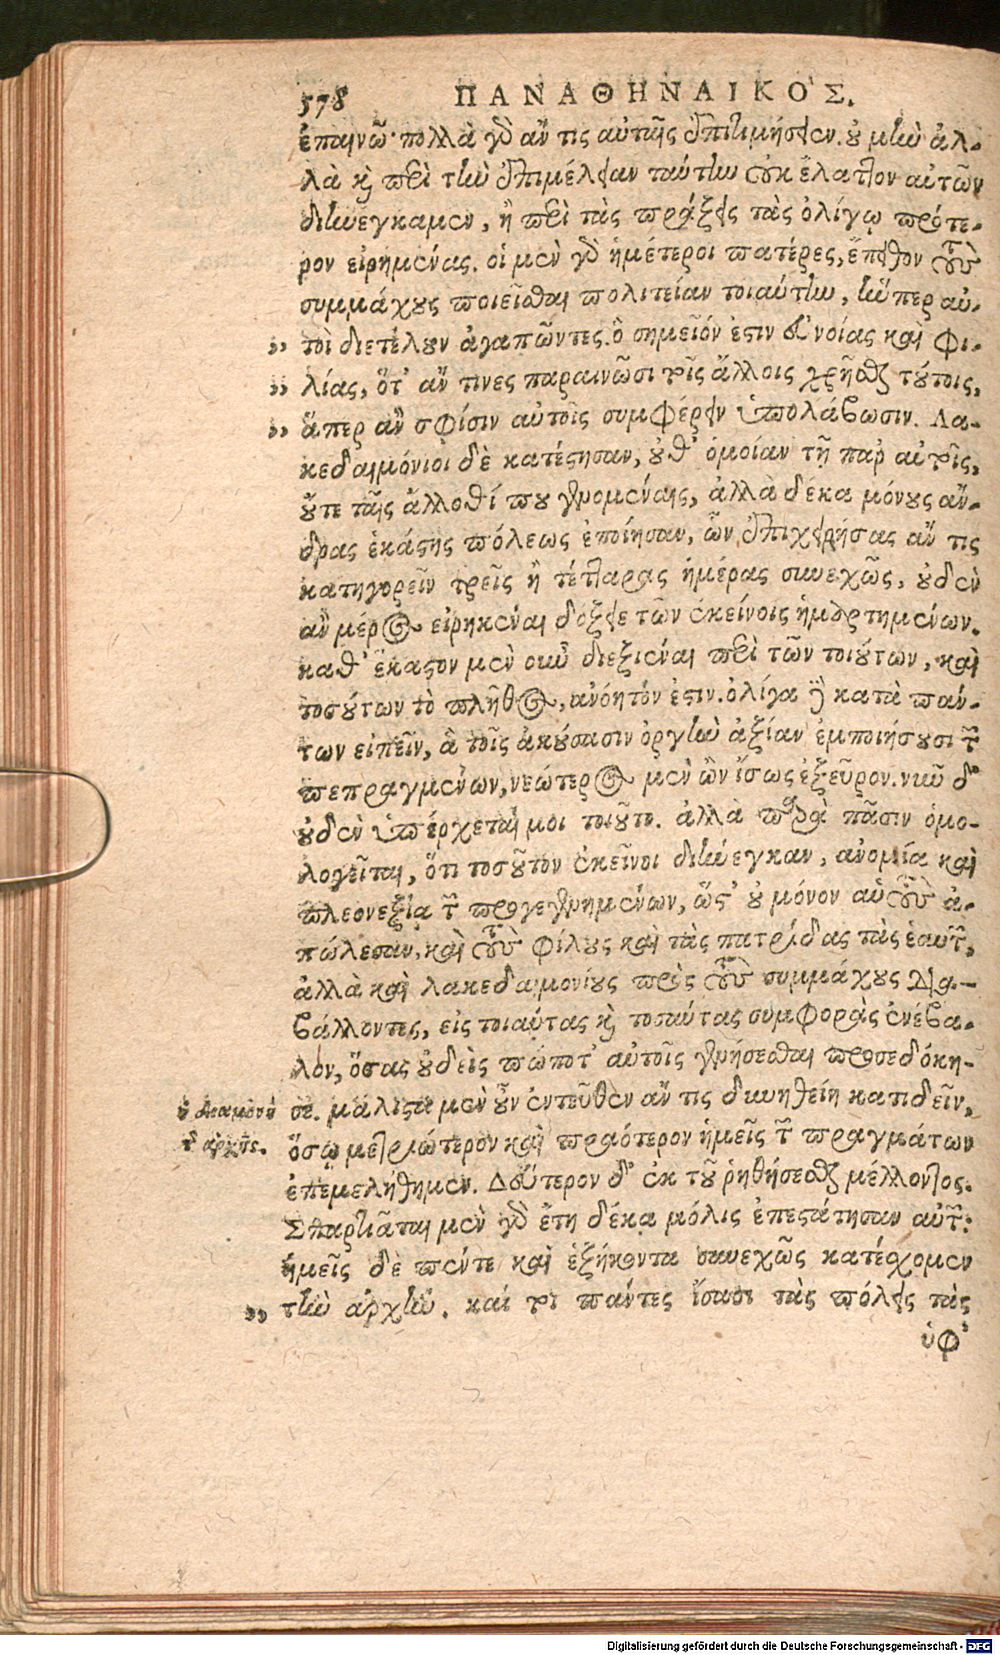 578 ΠΑΝΑΘΗΝΑΙΚΟΣ.
ἐπαινῶ· πολλὰ γὸ ἄν τις αὐταῖς ἐπιτιμήσειεν. οὐ μὴν ἀλ-
λὰ καὶ περὶ τὴν ἐπιμέλειαν ταύτην οὐκ ἔλαττον αὐτῶν
διηνέγκαμεν, ἢ περὶ τὰς πράξεις τὰς ὀλίγῳ πρότε-
ρον εἰρημένας. οἱ μὲν γὸ ἡμέτεροι πατέρες, ἔπειθον τοὺς
συμμάχους ποιεῖσθαι πολιτείαν τοιαύτην, ἥνπερ αὐ-
„ τοὶ διετέλουν ἀγαπῶντες. ὃ σημεῖόν ἐστιν εὐνοίας καὶ φι-
„ λίας, ὅτ' ἄν τινες παραινῶσι τοῖς ἄλλοις χρῆσθαι τούτοις,
„ ἅπερ ἂν σφίσιν αὐτοῖς συμφέρειν ὑπολάβωσιν. Λα-
κεδαιμόνιοι δὲ κατέστησαν, οὔθ' ὁμοίαν τῇ παρ' αὐτοῖς,
οὔτε ταῖς ἄλλοθί που γενομέναις, ἀλλὰ δέκα μόνους ἄν-
δρας ἑκάστης πόλεως ἐποίησαν, ὧν ἐπιχειρήσας ἄν τις
κατηγορεῖν τρεῖς ἢ τέτταρας ἡμέρας συνεχῶς, οὐδὲν
ἂν μέρος εἰρηκέναι δόξειε τῶν ἐκείνοις ἡμαρτημένων.
καθ' ἕκαστον μὲν οὖν διεξιέναι περὶ τῶν τοιούτων, καὶ
τοσούτων τὸ πλῆθος, ἀνόητόν ἐστιν. ὀλίγα δὲ κατὰ πάν-
των εἰπεῖν, ἃ τοῖς ἀκούσασιν ὀργὴν ἀξίαν ἐμποιήσουσι τῶν
πεπραγμένων, νεώτερος μὲν ὢν ἴσως ἐξεῦρον. νῦν δ'
οὐδὲν ὑπέρχεταί μοι τοιοῦτο. ἀλλὰ παρὰ πᾶσιν ὁμο-
λογεῖται, ὅτι τοσοῦτον ἐκεῖνοι διήνεγκαν, ἀνομίᾳ καὶ
πλεονεξίᾳ τῶν προγεγενημένων, ὥστ' οὐ μόνον αὑτοὺς ἀ-
πώλεσαν, καὶ τοὺς φίλους καὶ τὰς πατρίδας τὰς ἑαυτῶν,
ἀλλὰ καὶ λακεδαιμονίους πρὸς τοὺς συμμάχους δια-
βάλλοντες, εἰς τοιαύτας καὶ τοσαύτας συμφορὰς ἐνέβα-
λον, ὅσας οὐδεὶς πώποτ' αὐτοῖς γενήσεσθαι προσεδόκη-
σε. μάλιστα μὲν οὖν ἐντεῦθεν ἄν τις δυνηθείη κατιδεῖν,
ὅσῳ μετριώτερον καὶ πραότερον ἡμεῖς τῶν πραγμάτων
τῆς ἀρχῆς.
ἐπεμελήθημεν. Δεύτερον δ' ἐκ τοῦ ῥηθήσεσθαι μέλλοντος.
Σπαρτιᾶται μὲν γὸ ἔτη δέκα μόλις ἐπεστάτησαν αὐτῶν:
ἡμεῖς δὲ πέντε καὶ ἑξήκοντα συνεχῶς κατέχομεν
„ τὴν ἀρχήν. καί τοι πάντες ἴσασι τὰς πόλεις τὰς
ὑφ'
Digitalisierung gefördert durch die Deutsche Forschungsgemeinschaft - DFG